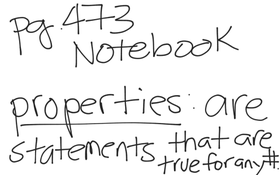 pg. 473
Notebook
properties: are
statements that are
true for any #.